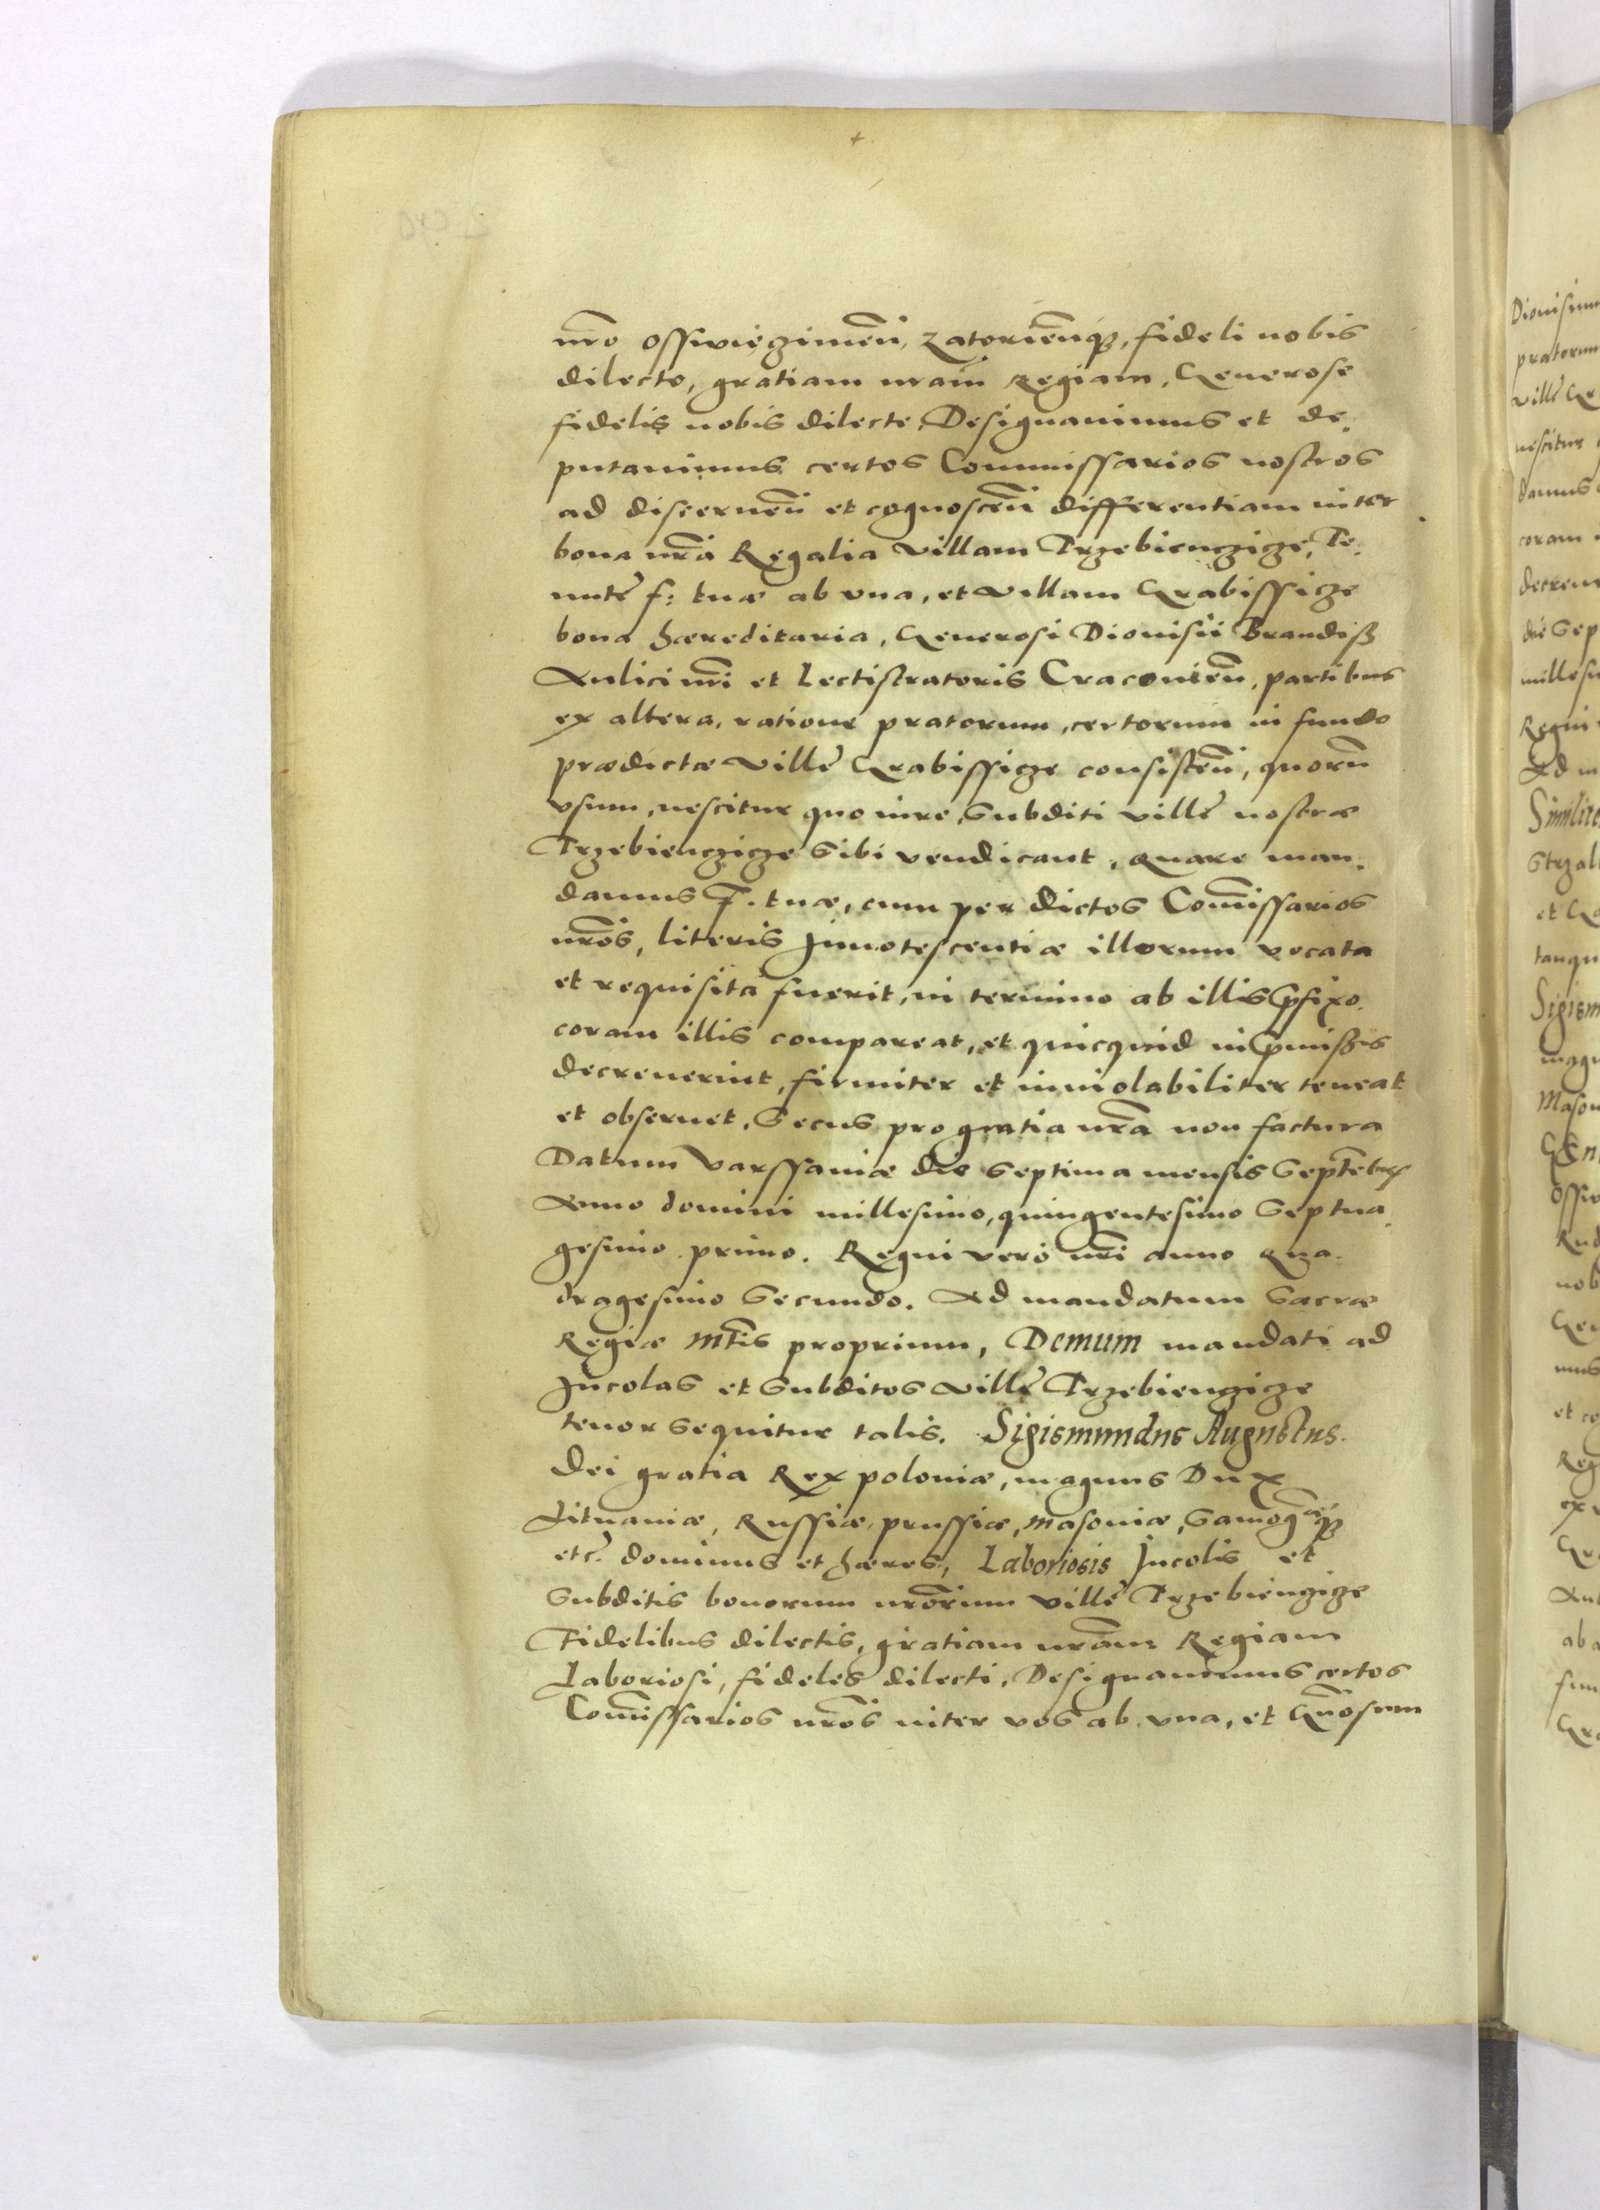 nr̃o Osswięcimeñ, Zatorieñqȝ, fideli nobis
dilecto, gratiam nrãm Regiam. Generose
fidelis nobis dilecte. Designauimus et de-
putauimus certos Commissarios nostros
ad discerneñ et cognosceñ differentiam inter
bona nrã Regalia villam Trzebienczicze, Te-
nutę f: tuæ ab vna, et villam Grabissicze
bona hæreditaria, Generosi Dionisii Brandiß
Aulici nrĩ et Lectistratoris Cracouieñ, partibus
ex altera, ratione pratorum, certorum in fundo
prædictæ villę Grabissicze consisteñ, quorũ
vsum, nescitur quo iure, Subditi villę nostræ
Trzebienczicze Sibi vendicant, quare man-
damus F. tuæ, cum per dictos Com̃issarios
nrõs, literis Innotescentiæ illorum vocata
et requisita fuerit, in termino ab illis p̃fixo
coram illis compareat, et quicquid in p̃missis
decreuerint, firmiter et inuiolabiliter teneat
et obseruet. Secus pro gratia nrã non factura
Datum Varssauiæ die Septima mensis Septẽbris
Anno domini millesimo, quingentesimo Septua-
gesimo primo. Regni vero nrĩ anno Qua-
dragesimo Secundo. Ad mandatum Sacræ
Regiæ Mtĩs proprium, Demum mandati ad
Incolas et Subditos villę Trzebienczicze
tenor Sequitur talis. Sigismundus Augustus
Dei gratia Rex poloniæ, magnus Dux
Lituaniæ, Russiæ, prussiæ, Masouiæ, Samogiæqȝ
etc̃. dominus et hæres, Laboriosis Incolis et
Subditis bonorum nrõrum villę Trzebienczicze
Fidelibus dilectis, gratiam nrãm Regiam
Laboriosi, fideles dilecti, Designauimus certos
Com̃issarios nrõs inter vos ab vna, et Gñosum